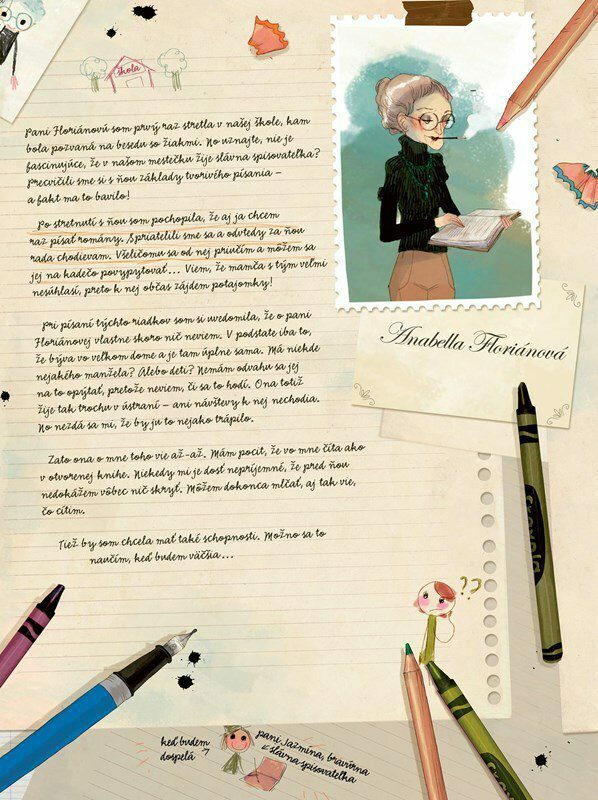 škola
Pani Floriánovú som prvý raz stretla v našej škole, kam
bola pozvaná na besedu so žiakmi. No uznajte, nie je
fascinujúce, že v našom mestečku žije slávna spisovateľka?
Precvičili sme si s ňou základy tvorivého písania –
a fakt ma to bavilo!
Po stretnutí s ňou som pochopila, že aj ja chcem
raz písať romány. Spriatelili sme sa a odvtedy za ňou
rada chodievam. Všeličomu sa od nej priučím a môžem sa
jej na kadečo povypytovať... Viem, že mamča s tým veľmi
nesúhlasí, preto k nej občas zájdem potajomky!
Pri písaní týchto riadkov som si uvedomila, že o pani
Floriánovej vlastne skoro nič neviem. V podstate iba to,
že býva vo veľkom dome a je tam úplne sama. Má niekde
nejakého manžela? Alebo deti? Nemám odvahu sa jej
na to opýtať, pretože neviem, či sa to hodí. Ona totiž
žije tak trochu v ústraní – ani návštevy k nej nechodia.
No nezdá sa mi, že by ju to nejako trápilo.
Zato ona o mne toho vie až-až. Mám pocit, že vo mne číta ako
v otvorenej knihe. Niekedy mi je dosť nepríjemné, že pred ňou
nedokážem vôbec nič skryť. Môžem dokonca mlčať, aj tak vie,
čo cítim.
Tiež by som chcela mať také schopnosti. Možno sa to
naučím, keď budem väčšia...
Anabella Floriánová
Crayola
??
keď budem
dospelá
pani Jazmína, bravúrna
a slávna spisovateľka